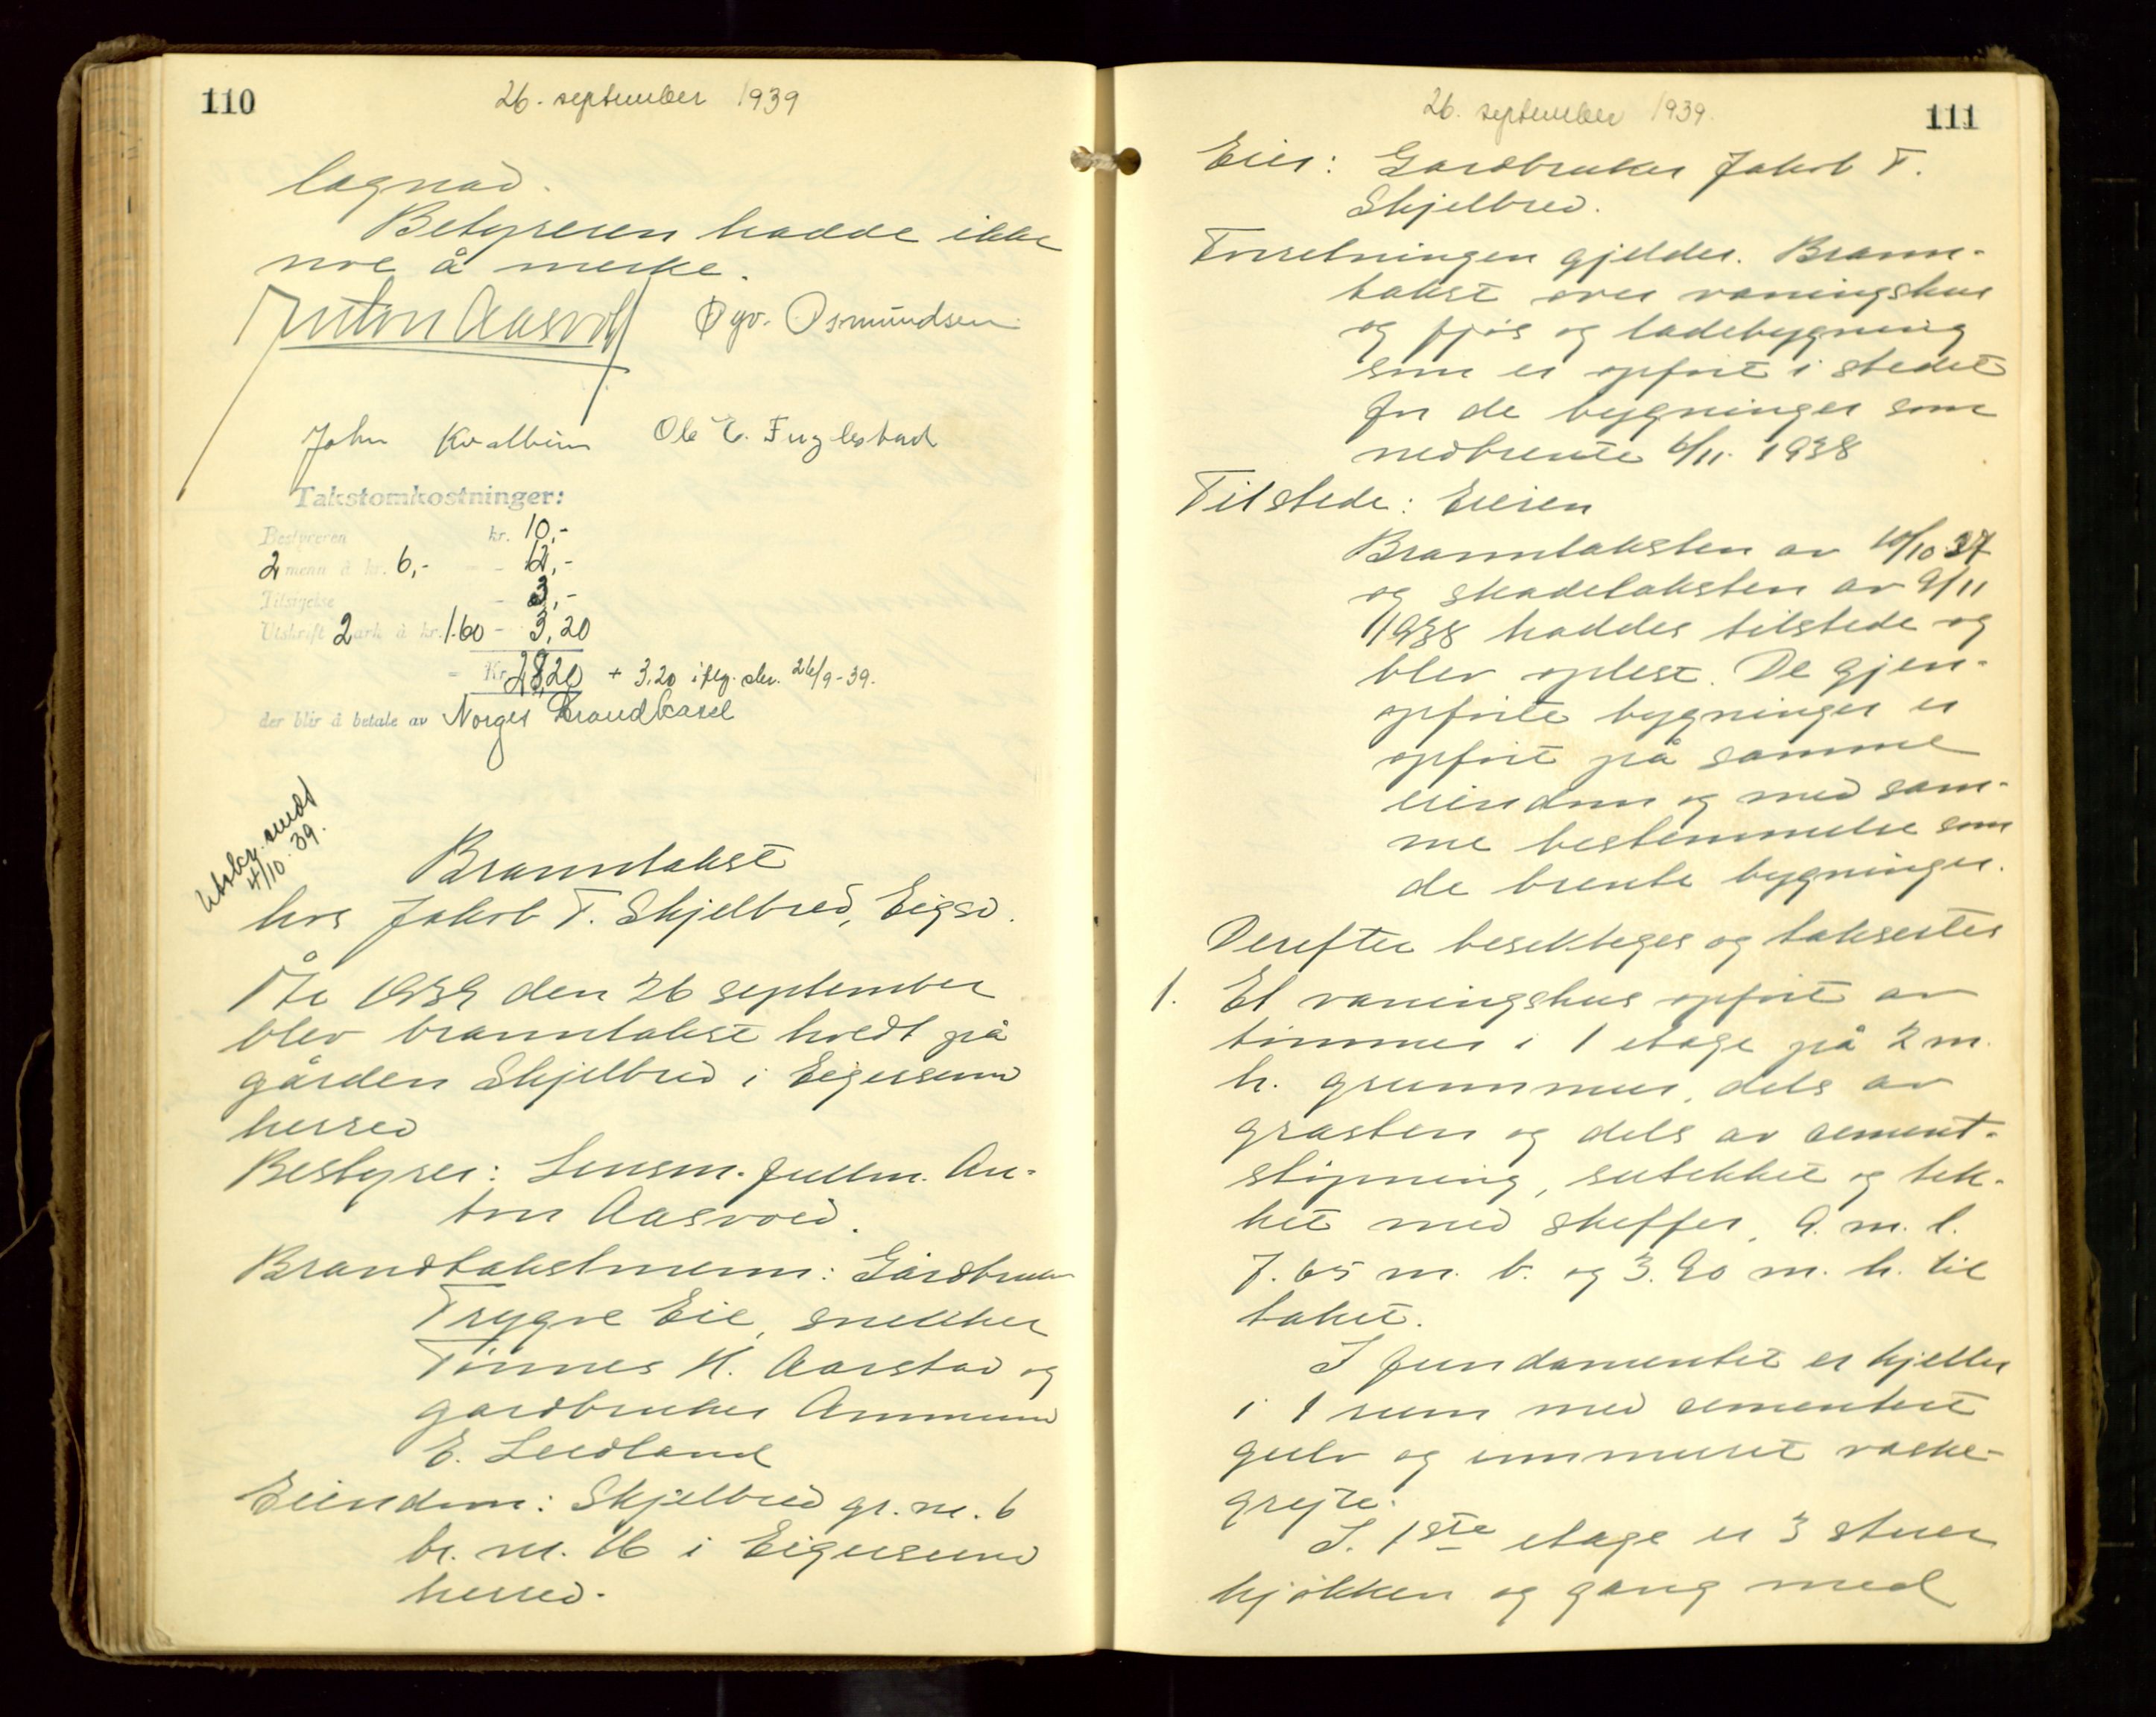 110
26. september 1939
lagnad.
Betyreren hadde ikke
noe å merke.
Anton Aasvold Øyv. Osmundsen
John Kvalbein Ole E. Fuglestad
Takstomkostninger:
Bestyreren kr. 10,-
2 menn à kr. 6,- - - 12,-
Tilsigelse - 3,-
Utskrift 2 ark à kr. 1.60 - 3,20
= Kr. 28,20 + 3.20 iflg. skr. 26/9-39.
der blir å betale av Norges Brandkasse
Utskr. sendt
4/10 39.
Branntakst
hos Jakob T. Skjelbred, Eigsd.
År 1939 den 26 september
blev branntakst holdt på
gården Skjelbred i Eigersund
herred
Bestyrer: Lensm. fullm. An-
ton Aasvold.
Brandtakstmenn: Gårdbruker
Trygve Eie, snekker
Tønnes H. Aarstad og
gardbruker Ammund
E. Leidland
Eiendom: Skjelbred gr. nr. 6
br. nr. 16 i Eigersund
herred.
26. september 1939.
111
Eier: Gardbruker Jakob T.
Skjelbred.
Forretningen gjelder. Brann-
takst over vaningshus
og fjøs og ladebygning
som er opført i stedet
for de bygninger som
nedbrente 6/11. 1938
Tilstede: Eieren
Branntaksten av 10/10 37
og skadetaksten av 9/11
1938 haddes tilstede og
blev oplest. De gjen-
opførte bygninger er
opført på samme
eiendom og med sam-
me bestemmelse som
de brente bygninger.
Derefter besiktiges og taksertes
1. Et vaningshus opført av
tømmer i 1 etage på 2 m.
h. grunnmur, dels av
gråsten og dels av cement-
støpning, sutekket og tek-
ket med skiffer, 9. m. l.
7.65 m. b. og 3.90 m. h. til
taket.
I fundamentet er kjeller
i 1 rum med cementert
gulv og innmuret vaske-
grejte.
I. 1ste etage er 3 stuer
kjøkken og gang med